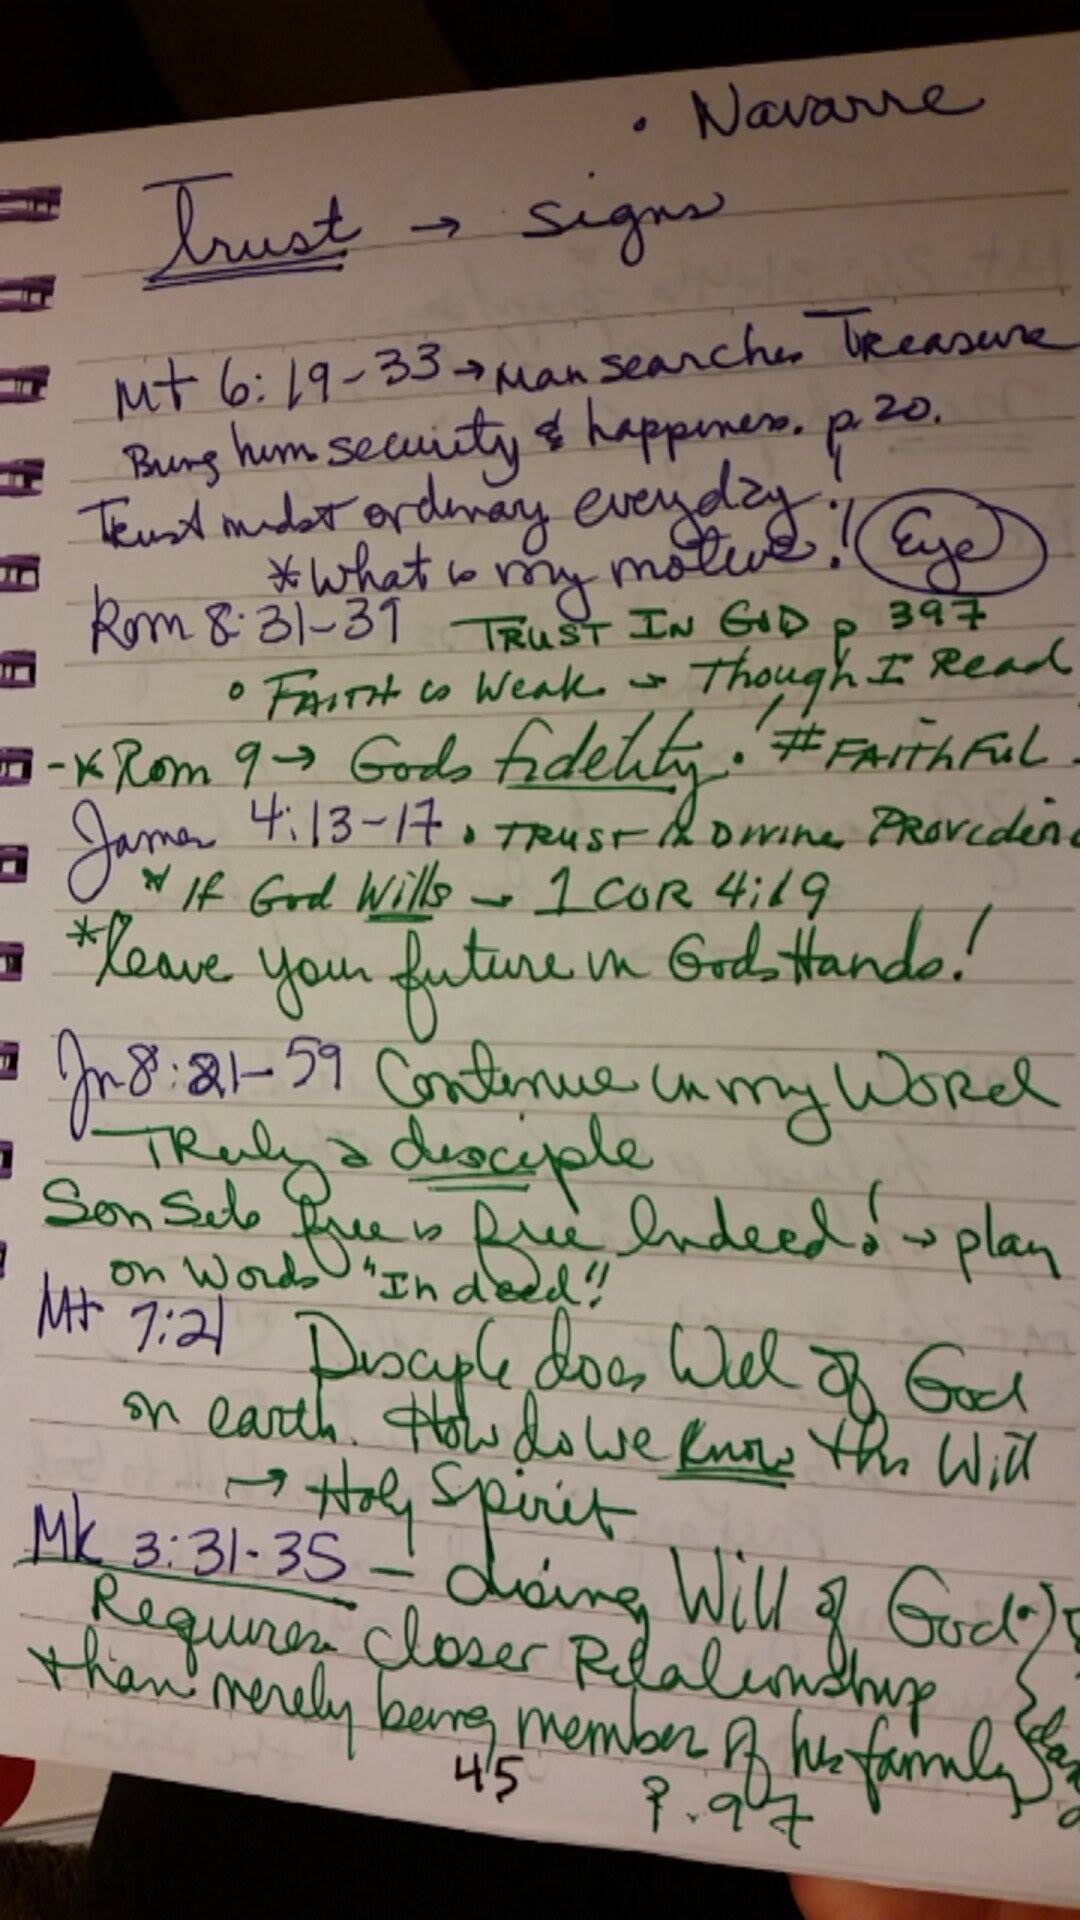 • Navarre
Trust → signs
Mt 6:19-33 → Man searches Treasure
Bring him security & happiness. p. 20.
Trust midst ordinary everyday!
*What is my motive! Eye
Rom 8:31-39 TRUST IN GOD p 397
° FAITH is Weak → Though I Read
-* Rom 9 → Gods fidelity! #FAITHFUL
James 4:13-17 • TRUST in Divine Providen
* If God Wills → 1 COR 4:19
*leave your future in Gods Hands!
Jn 8:21-59 Continue in my Word
Truly a disciple
Son Sets free is free Indeed! → play
on Words "Indeed!!
Mt 7:21 Disciple does Will of God
on earth. How do we know this Will
→ Holy Spirit
Mk 3:31-35 – doing Will of God
Requires closer Relationship
than merely being member of his family
45 P. 97